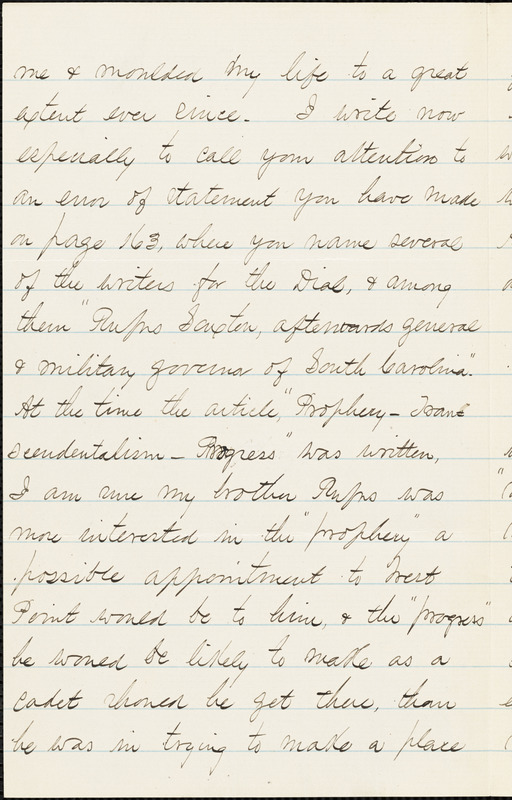 me & moulded my life to a great
extent ever since. I write now
especially to call your attention to
an error of statement you have made
on page 163, where you name several
of the writers for the Dial, & among
them "Rufus Saxton, afterwards general
& military governor of South Carolina".
At the time the article, "Prophecy - Tran-
scendentalism - Progress" was written,
I am sure my brother Rufus was
more interested in the "prophecy" a
possible appointment to West
Point would be to him, & the "progress"
he would be likely to make as a
cadet should he get there, than
he was in trying to make a place